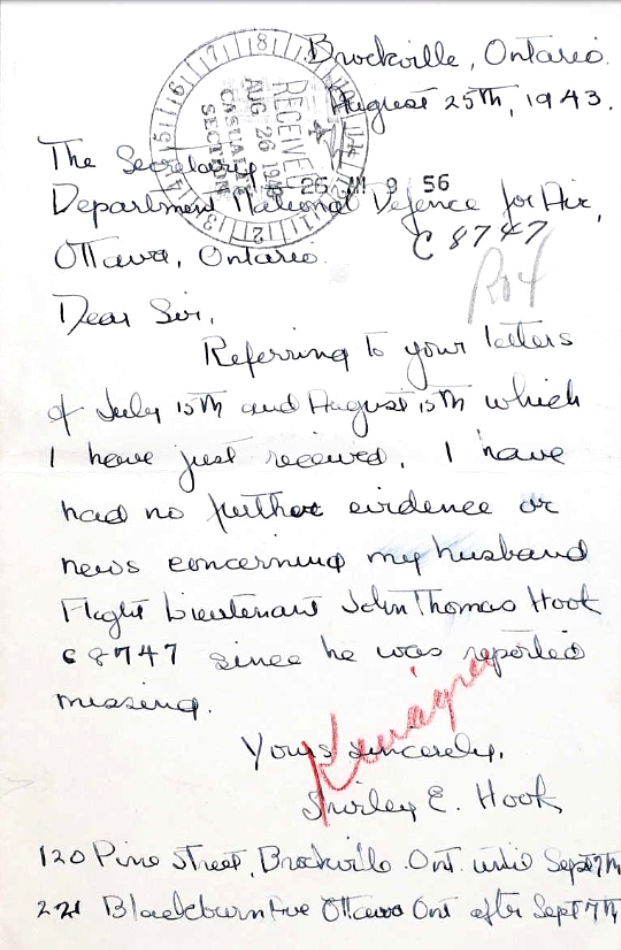 Brockville, Ontario.
August 25th, 1943.
RECEIVED
AUG 26 1943
CASUALTIES
SECTION
The Secretary
26 9 56
Department National Defence for Air,
C 8747
Ottawa, Ontario.
Dear Sir,
Referring to your letters
of July 15th and August 15th which
I have just received, I have
had no further evidence or
news concerning my husband
Flight Lieutenant John Thomas Hook
C8747 since he was reported
missing.
Yours sincerely,
Shirley E. Hook
120 Pine Street, Brockville. Ont. until Sept 7th
221 Blackburn Ave Ottawa Ont after Sept 7th